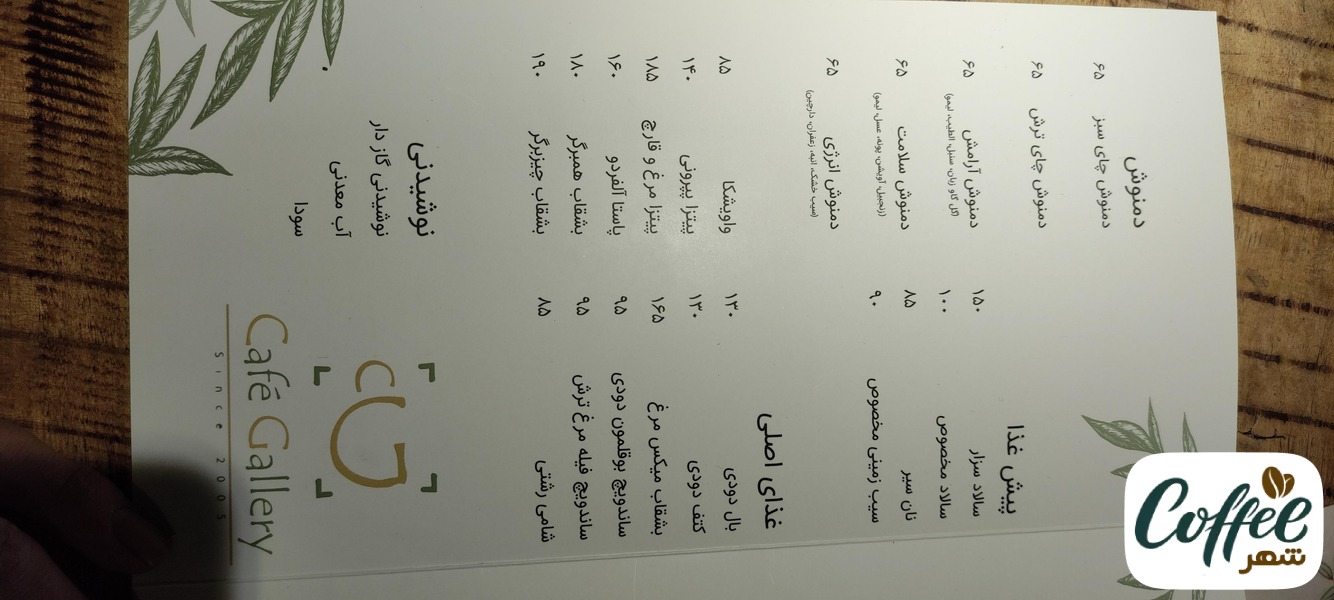 دمنوش
دمنوش چای سبز ۶۵
دمنوش چای ترش ۶۵
دمنوش آرامش ۶۵
(گل گاو زبان، سنبل الطیب، لیمو)
دمنوش سلامت ۶۵
(زنجبیل، آویشن، پونه، عسل، لیمو)
دمنوش انرژی ۶۵
(سیب خشک، انبه، زعفران، دارچین)
پیش غذا
سالاد سزار ۱۵۰
سالاد مخصوص ۱۰۰
نان سیر ۸۵
سیب زمینی مخصوص ۹۰
غذای اصلی
بال دودی ۱۳۰
کتف دودی ۱۳۰
بشقاب میکس مرغ ۱۶۵
ساندویچ بوقلمون دودی ۹۵
ساندویچ فیله مرغ ترش ۹۵
شامی رشتی ۸۵
واویشکا ۸۵
پیتزا پپرونی ۱۴۰
پیتزا مرغ و قارچ ۱۸۵
پاستا آلفردو ۱۶۰
بشقاب همبرگر ۱۸۰
بشقاب چیزبرگر ۱۹۰
نوشیدنی
نوشیدنی گاز دار
آب معدنی
سودا
CG
Café Gallery
since 2005
Coffee
شهر